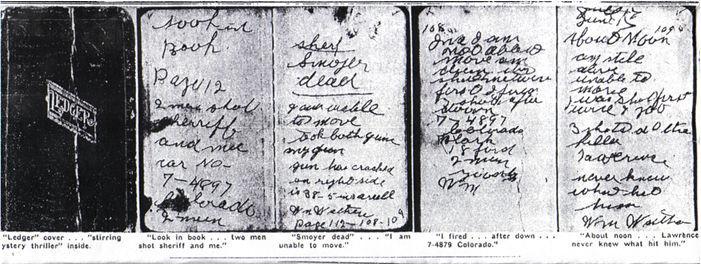 LEDGER
Look in
Book
Page 12
2 men shot
sherriff
and me
car No-
7-4897
Colorado
2 men
sherf
Smoyer
dead
I am unable
to move
took both guns
my gun
gun has cracked
on right side
is 38-5 in
Wm Walther
Page 112-108-109
108
I am
not able to
move am
first I fired
down
7-4897
Colorado
Black
18 ford
2 men
Wm
109
About Noon
am still
alive
unable to
move
I was shot first
3 shots did the
killer
Lawrence
never knew
what hit
him
Wm Walther
"Ledger" cover . . . "stirring
ystery thriller" inside.
"Look in book . . . two men
shot sheriff and me."
"Smoyer dead" . . . "I am
unable to move."
"I fired . . . after down . . .
7-4879 Colorado."
"About noon . . . Lawrence
never knew what hit him."